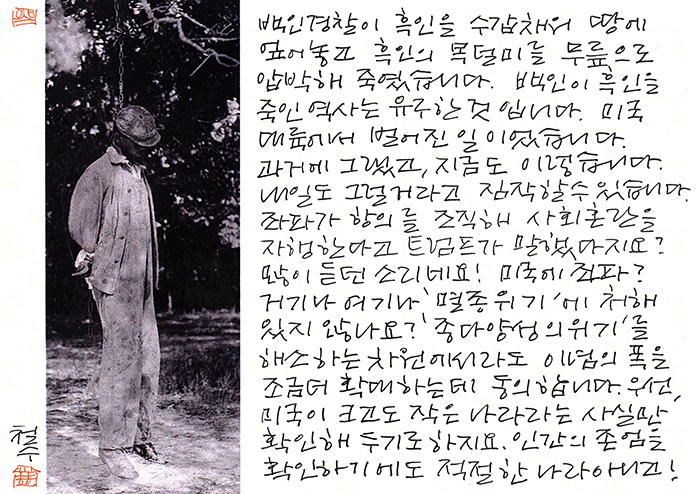 백인경찰이 흑인을 수갑채워 땅에
엎어놓고 흑인의 목덜미를 무릎으로
압박해 죽였습니다. 백인이 흑인을
죽인 역사는 유구한 것 입니다. 미국
대륙에서 벌어진 일 이었습니다.
과거에 그랬고, 지금도 이렇습니다.
내일도 그럴거라고 짐작할수있습니다.
좌파가 항의를 조직해 사회혼란을
자행한다고 트럼프가 말했다지요?
많이 듣던 소리네요! 미국에 좌파?
거기나 여기나 '멸종위기'에 처해
있지 않나요? '종다양성의위기'를
해소하는 차원에서라도 이념의 폭을
조금더 확대하는데 동의합니다. 우선,
미국이 크고도 작은 나라라는 사실만
확인해 두기로 하지요. 인간의 존엄을
확인하기에도 적절한 나라아니고!
철수